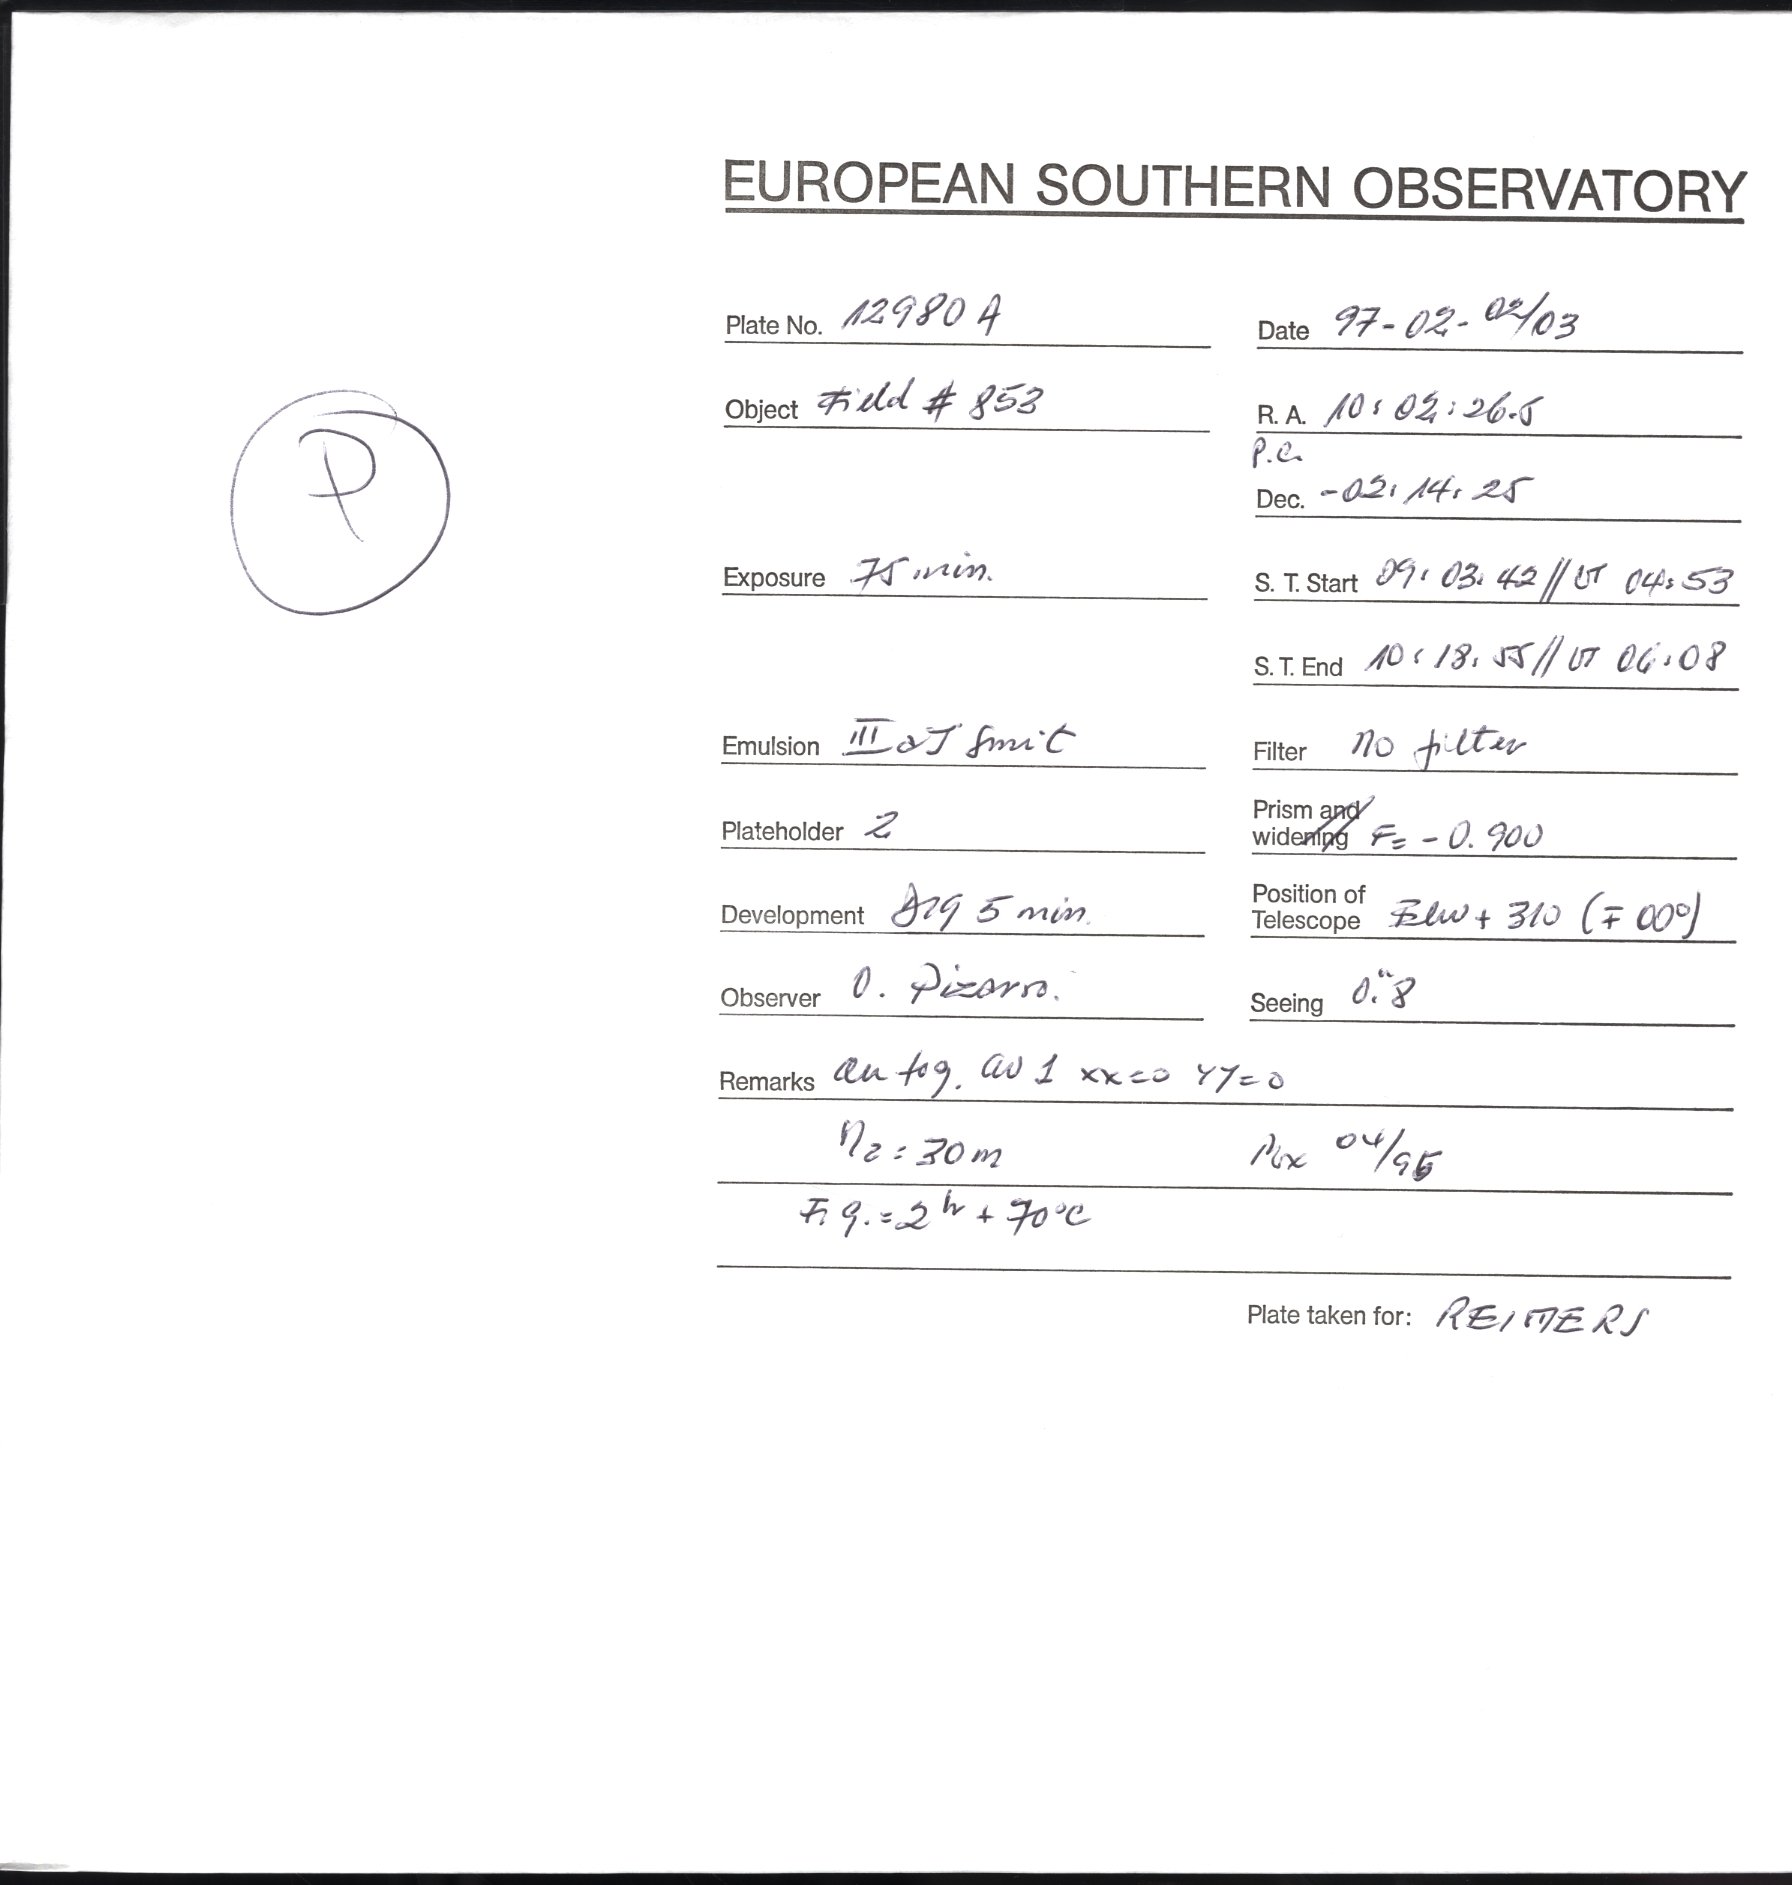 EUROPEAN SOUTHERN OBSERVATORY
Plate No. 12980 A
Date 97-02-02/03
Object Field # 853
R. A. 10:02:26.5
P
P.C.
Dec. -02:14:25
Exposure 75 min.
S. T. Start 09:03:42 // UT 04:53
S. T. End 10:18:55 // UT 06:08
Emulsion III aJ
Filter no filter
Plateholder 2
Prism and widening F= -0.900
Development D19 5 min.
Position of Telescope + 310 (∓ 00°)
Observer O. Pizarro.
Seeing 0."8
Remarks xx=0 YY=0
N2 = 30 m
04/95
= 2h + 70°C
Plate taken for: REIMERS